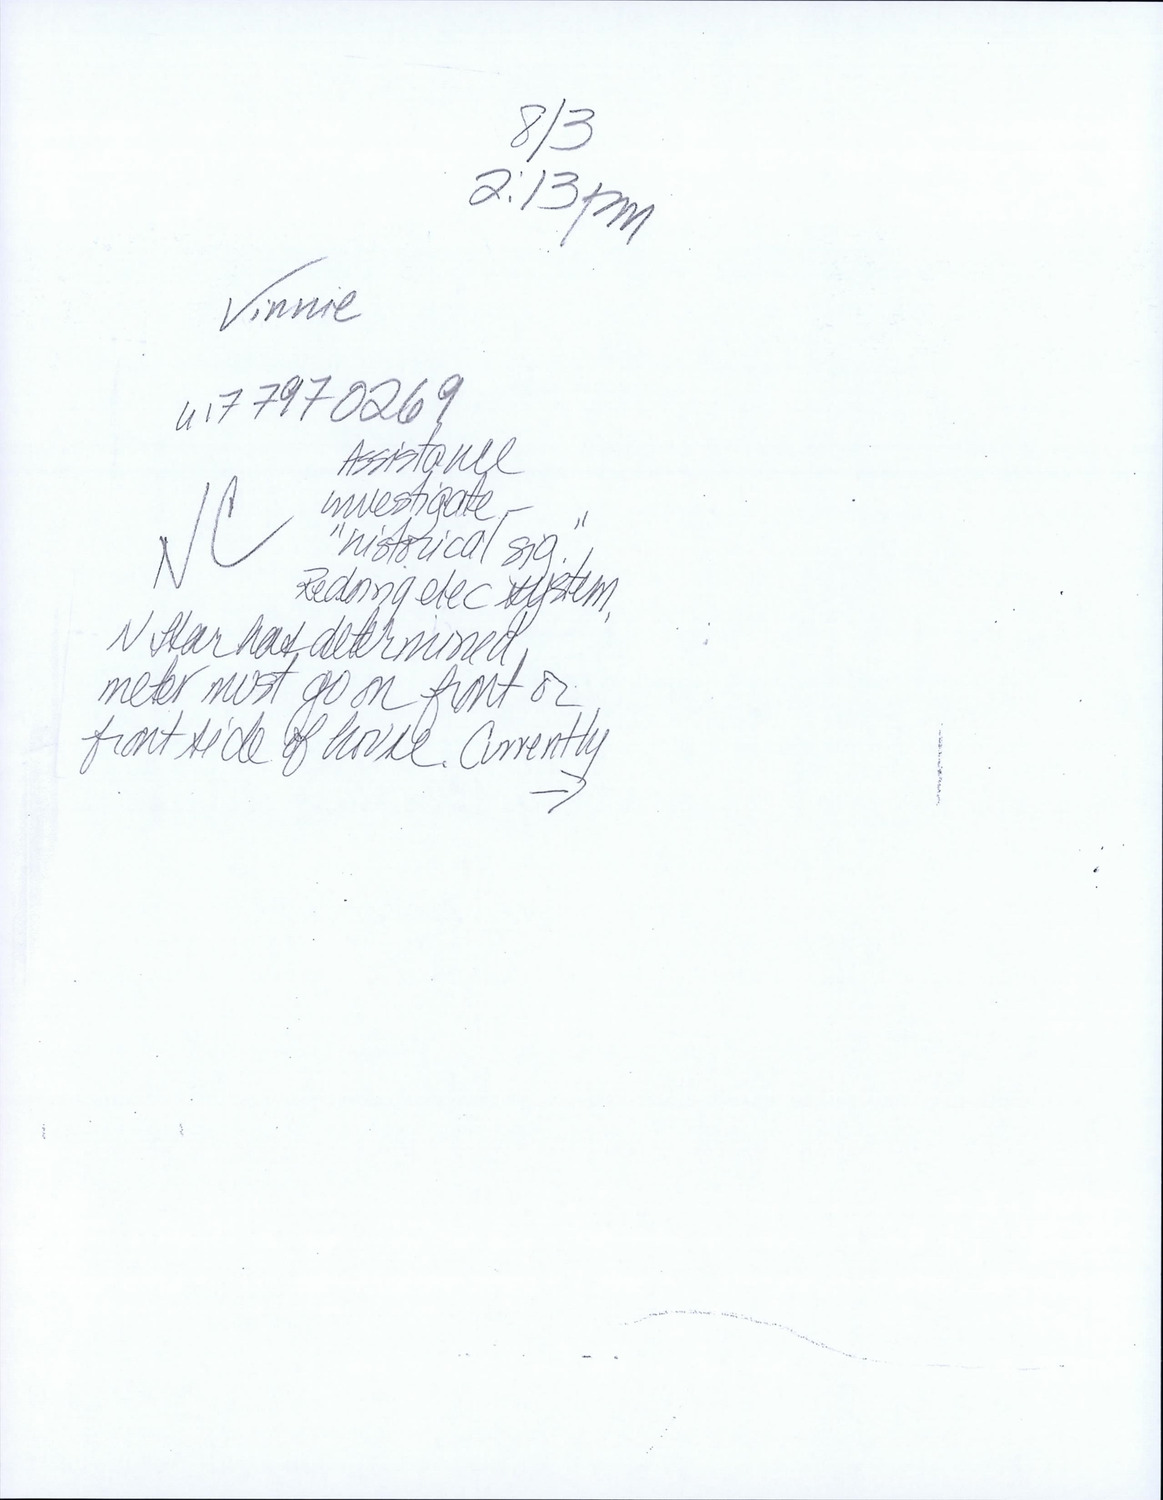 8/3
2:13pm
Vinnie
617 797 0269
Assistance
NC
investigate -
"historical sig."
Redoing elec system.
N Star has determined
meter must go on front or
front side of house. Currently
→